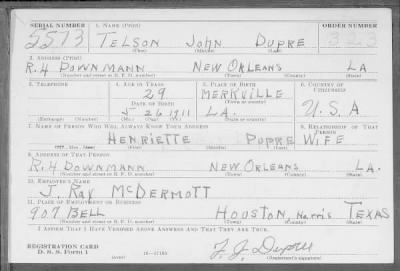 SERIAL NUMBER 1. NAME (Print) ORDER NUMBER
5573 TELSON JOHN DUPRE
(First) (Middle) (Last)
2. ADDRESS (Print)
R.H DOWNMANN NEW ORLEANS LA
(Number and street or R. F. D. number) (Town) (County) (State)
3. TELEPHONE 4. AGE IN YEARS 5. PLACE OF BIRTH 6. COUNTRY OF CITIZENSHIP
29 MERKVILLE
DATE OF BIRTH (Town or county)
5 26 1911 LA. U.S.A
(Exchange) (Number) (Mo.) (Day) (Yr.) (State or country)
7. NAME OF PERSON WHO WILL ALWAYS KNOW YOUR ADDRESS 8. RELATIONSHIP OF THAT PERSON
HENRIETTE DUPRE WIFE
(Mr., Mrs., Miss) (First) (Middle) (Last)
9. ADDRESS OF THAT PERSON
R.H DOWNMANN NEW ORLEANS LA.
(Number and street or R. F. D. number) (Town) (County) (State)
10. EMPLOYER'S NAME
J. RAY MCDERMOTT
11. PLACE OF EMPLOYMENT OR BUSINESS
907 BELL HOUSTON, Harris TEXAS
(Number and street or R. F. D. number) (Town) (County) (State)
I AFFIRM THAT I HAVE VERIFIED ABOVE ANSWERS AND THAT THEY ARE TRUE.
REGISTRATION CARD
D. S. S. FORM 1 (over) 16-17105 T. J. Dupre
(Registrant's signature)